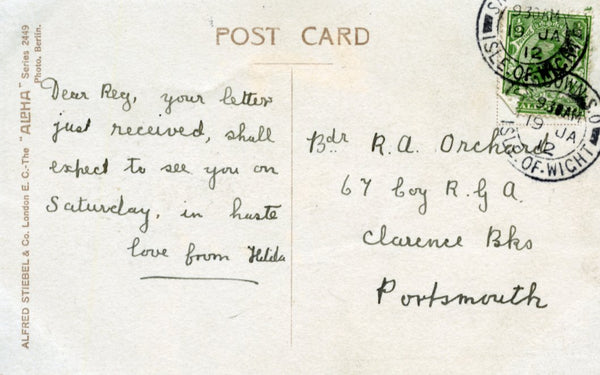 POST CARD
ALFRED STIEBEL & Co. London E. C.-The "ALPHA" Series 2449
Photo. Berlin.
Dear Reg, your letter
just received, shall
expect to see you on
Saturday, in haste
love from Hilda
Bdr R. A. Orchard
67 Coy R. G. A.
Clarence Bks
Portsmouth
930AM
19 JA
12
ISLE.OF.WIGHT
930AM
19 JA
12
ISLE.OF.WIGHT